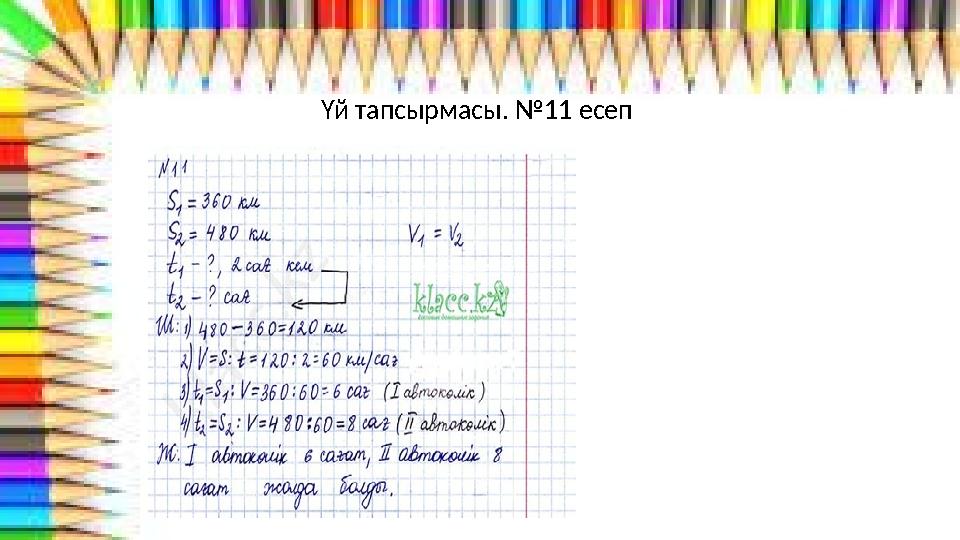 Үй тапсырмасы. №11 есеп
N11
S₁ = 360 км
S₂ = 480 км V₁ = V₂
t₁ – ?, 2 сағ кем
t₂ – ? сағ
klacc.kz
Ш: 1) 480 – 360 = 120 км
2) V = S : t = 120 : 2 = 60 км/сағ
3) t₁ = S₁ : V = 360 : 60 = 6 сағ (I автокөлік)
4) t₂ = S₂ : V = 480 : 60 = 8 сағ (II автокөлік)
Ж: I автокөлік 6 сағат, II автокөлік 8
сағат жолда болды.